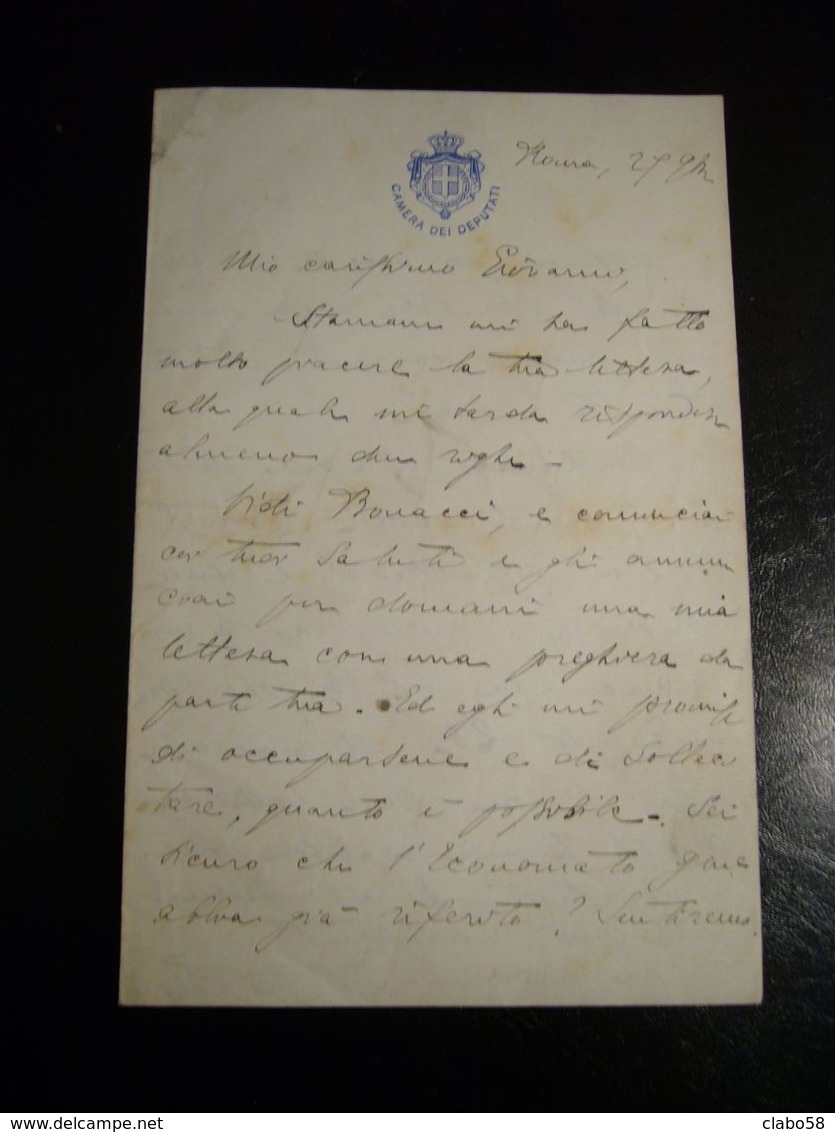 Roma, 27 9bre
CAMERA DEI DEPUTATI
Mio carissimo Giovanni,
Stamani mi ha fatto
molto piacere la tua lettera,
alla quale mi tarda rispondere
almeno due righe –
Vidi Bonacci, e cominciai
coi tuoi saluti e gli annun
ciai per domani una mia
lettera con una preghiera da
parte tua. Ed egli mi promise
di occuparsene e di solleci
tare, quanto è possibile –. Sei
sicuro che l'Economato gen
abbia già riferito? Sentiremo.
delcampe.net
clabo58